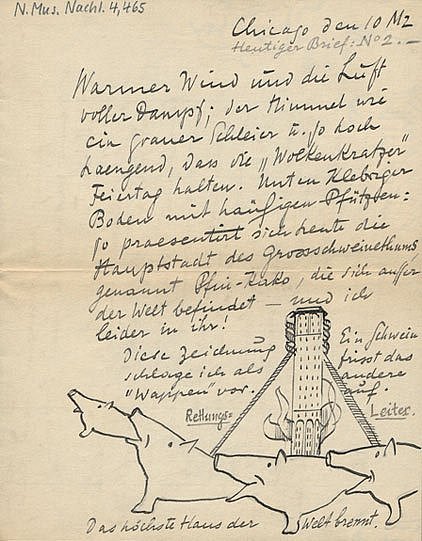 N. Mus. Nachl. 4,465
Chicago den 10 Mz
Heutiger Brief: No 2.—
Warmer Wind und die Luft
voller Dampf; der Himmel wie
ein grauer Schleier u. so hoch
haengend, dass die „Wolkenkratzer"
Feiertag halten. Unten Klebriger
Boden mit häufigen Pfützen:
so praesentirt sich heute die
Hauptstadt des Grossschweinethums,
genannt Pfui-Kako, die sich ausser
der Welt befindet — und ich
leider in ihr!
Diese Zeichnung
schlage ich als
"Wappen" vor.
Ein Schwein
frisst das
andere
auf.
Rettungs=
Leiter.
Das höchste Haus der Welt brennt.